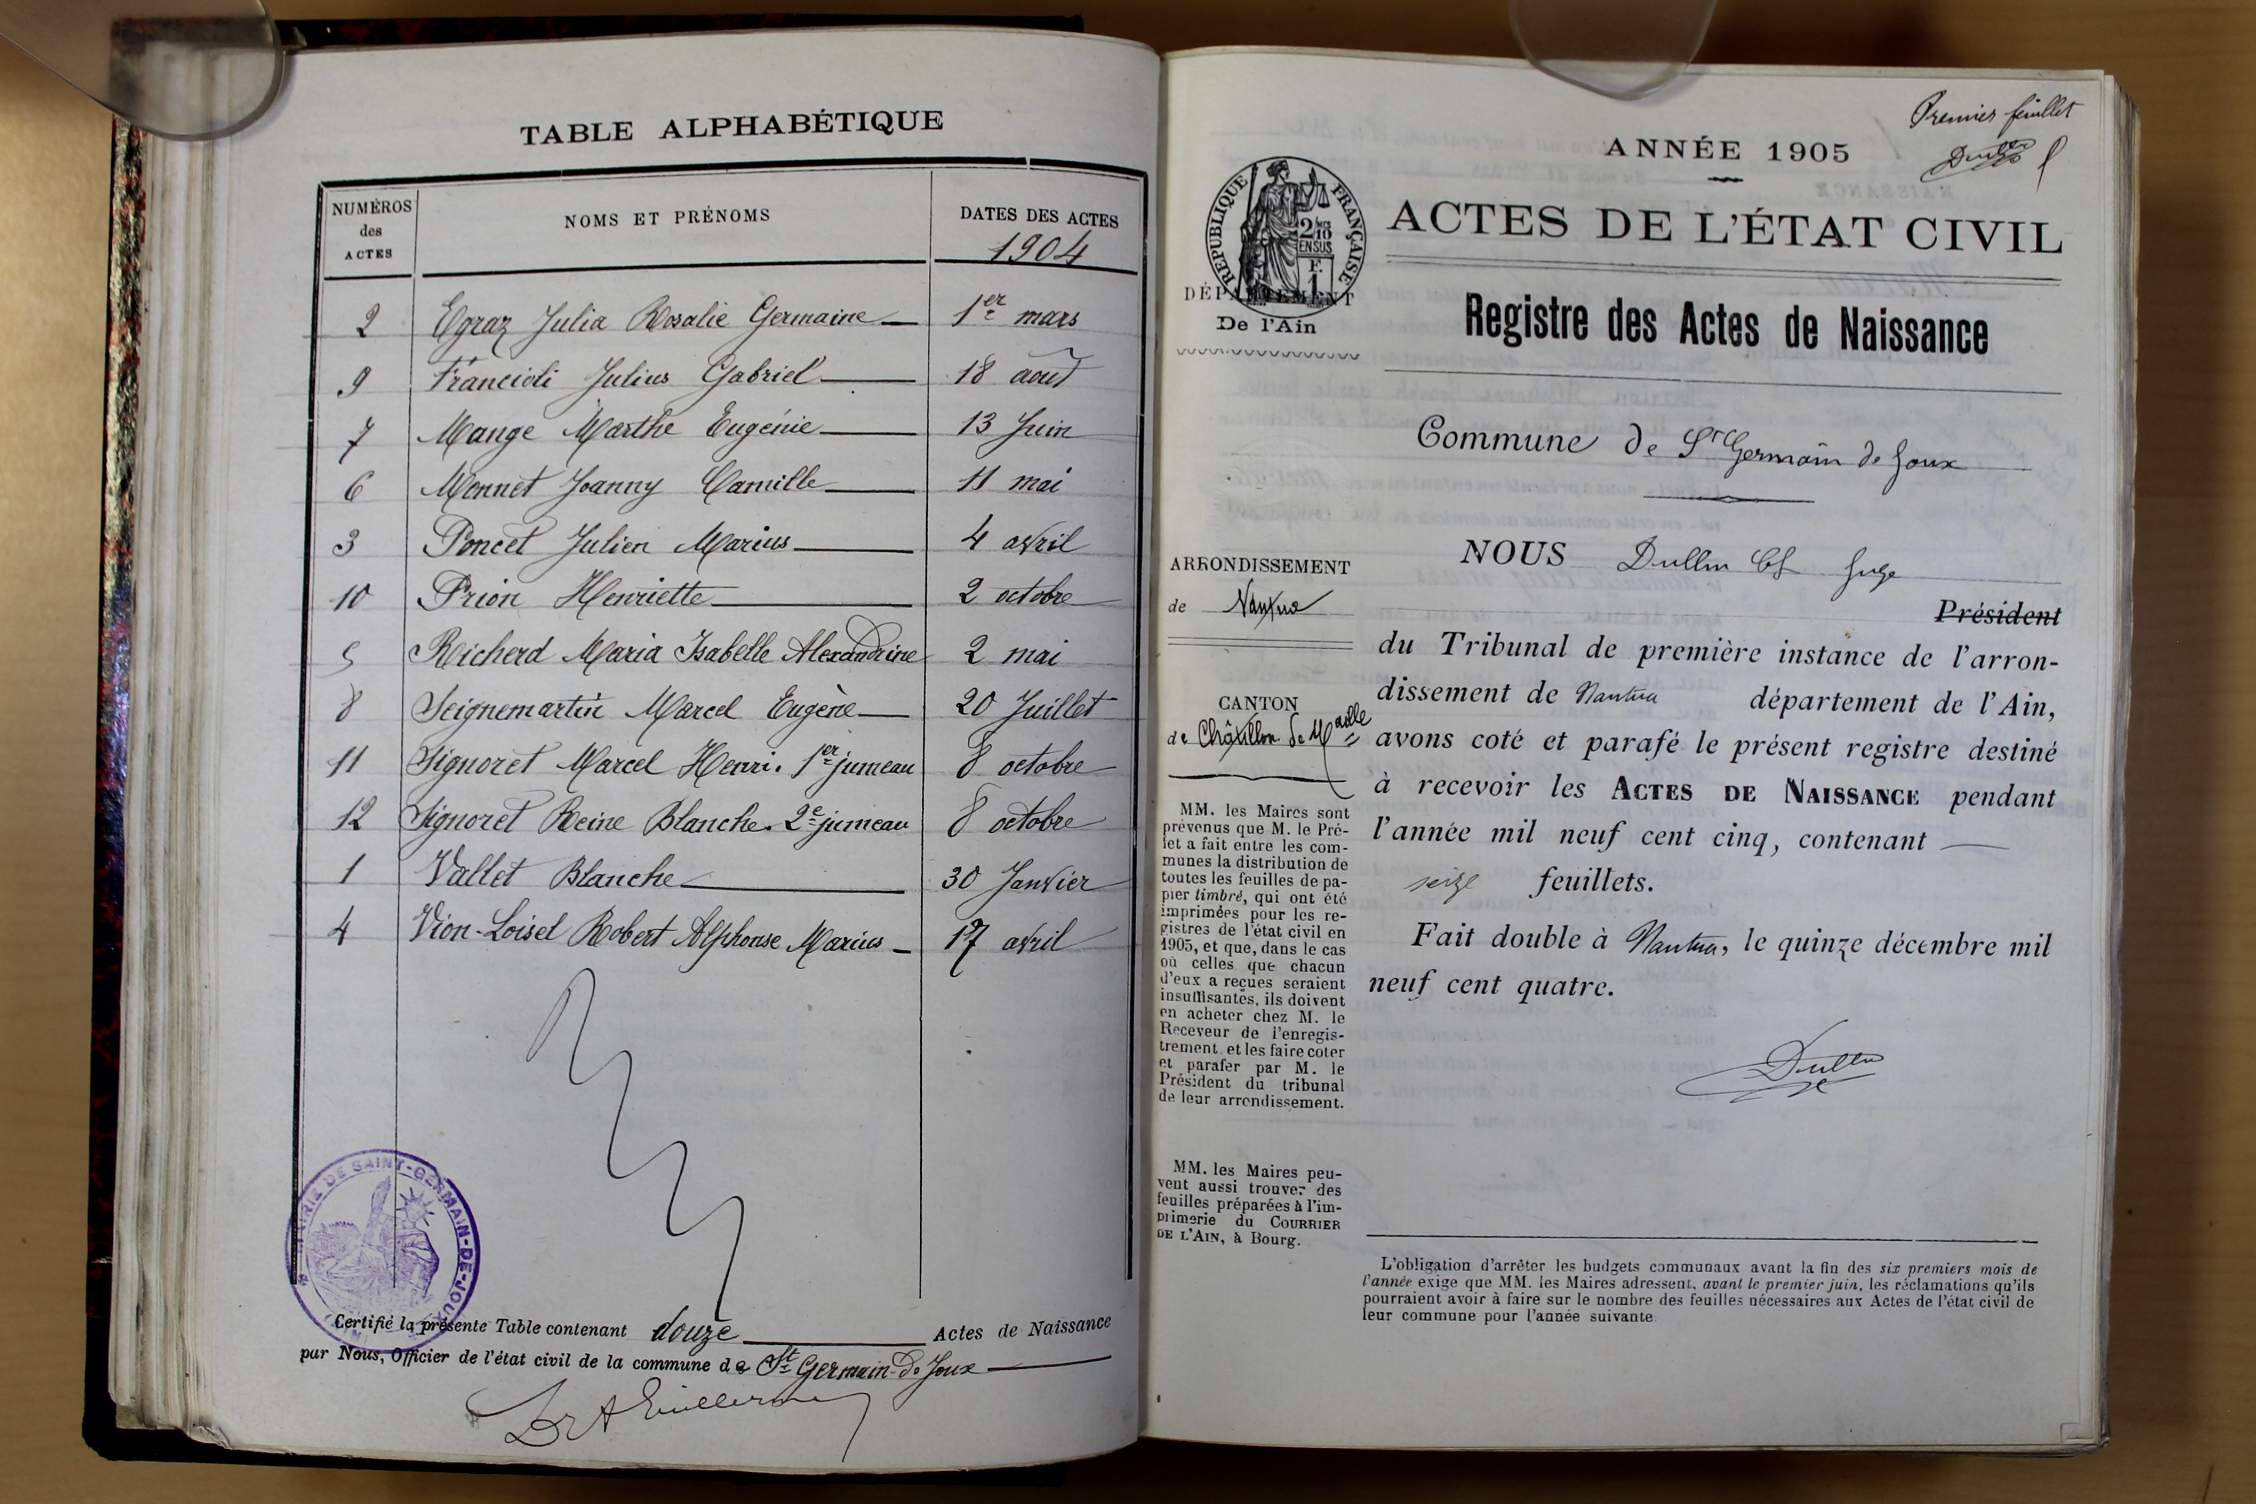 TABLE ALPHABÉTIQUE
NUMÉROS
des
ACTES
NOMS ET PRÉNOMS
DATES DES ACTES
1904
2 Egraz Julia Rosalie Germaine 1er mars
9 Francioli Julius Gabriel 18 août
7 Mange Marthe Eugénie 13 Juin
6 Monnet Joanny Camille 11 mai
3 Poncet Julien Marius 4 avril
10 Prion Henriette 2 octobre
5 Richerd Maria Isabelle Alexandrine 2 mai
8 Seignemartin Marcel Eugène 20 Juillet
11 Signoret Marcel Henri. 1er jumeau 8 octobre
12 Signoret Reine Blanche. 2e jumeau 8 octobre
1 Vallet Blanche 30 Janvier
4 Vion-Loisel Robert Alphonse Marius 17 avril
MAIRIE DE SAINT-GERMAIN-DE-JOUX
Certifié la présente Table contenant douze Actes de Naissance
par Nous, Officier de l'état civil de la commune de St Germain-de-Joux
Premier feuillet
Dullin
ANNÉE 1905
ACTES DE L'ÉTAT CIVIL
RÉPUBLIQUE FRANÇAISE
2/10
EN SUS
F.
1
DÉPARTEMENT
De l'Ain
Registre des Actes de Naissance
Commune de St Germain de Joux
ARRONDISSEMENT
de Nantua
CANTON
de Châtillon de Maille
MM. les Maires sont
prévenus que M. le Pré-
fet a fait entre les com-
munes la distribution de
toutes les feuilles de pa-
pier timbré, qui ont été
imprimées pour les re-
gistres de l'état civil en
1905, et que, dans le cas
où celles que chacun
d'eux a reçues seraient
insuffisantes, ils doivent
en acheter chez M. le
Receveur de l'enregis-
trement et les faire coter
et parafer par M. le
Président du tribunal
de leur arrondissement.
MM. les Maires peu-
vent aussi trouver des
feuilles préparées à l'im-
primerie du COURRIER
DE L'AIN, à Bourg.
NOUS Dullin Juge
Président
du Tribunal de première instance de l'arron-
dissement de Nantua département de l'Ain,
avons coté et parafé le présent registre destiné
à recevoir les ACTES DE NAISSANCE pendant
l'année mil neuf cent cinq, contenant
seize feuillets.
Fait double à Nantua, le quinze décembre mil
neuf cent quatre.
Dullin
L'obligation d'arrêter les budgets communaux avant la fin des six premiers mois de
l'année exige que MM. les Maires adressent, avant le premier juin, les réclamations qu'ils
pourraient avoir à faire sur le nombre des feuilles nécessaires aux Actes de l'état civil de
leur commune pour l'année suivante